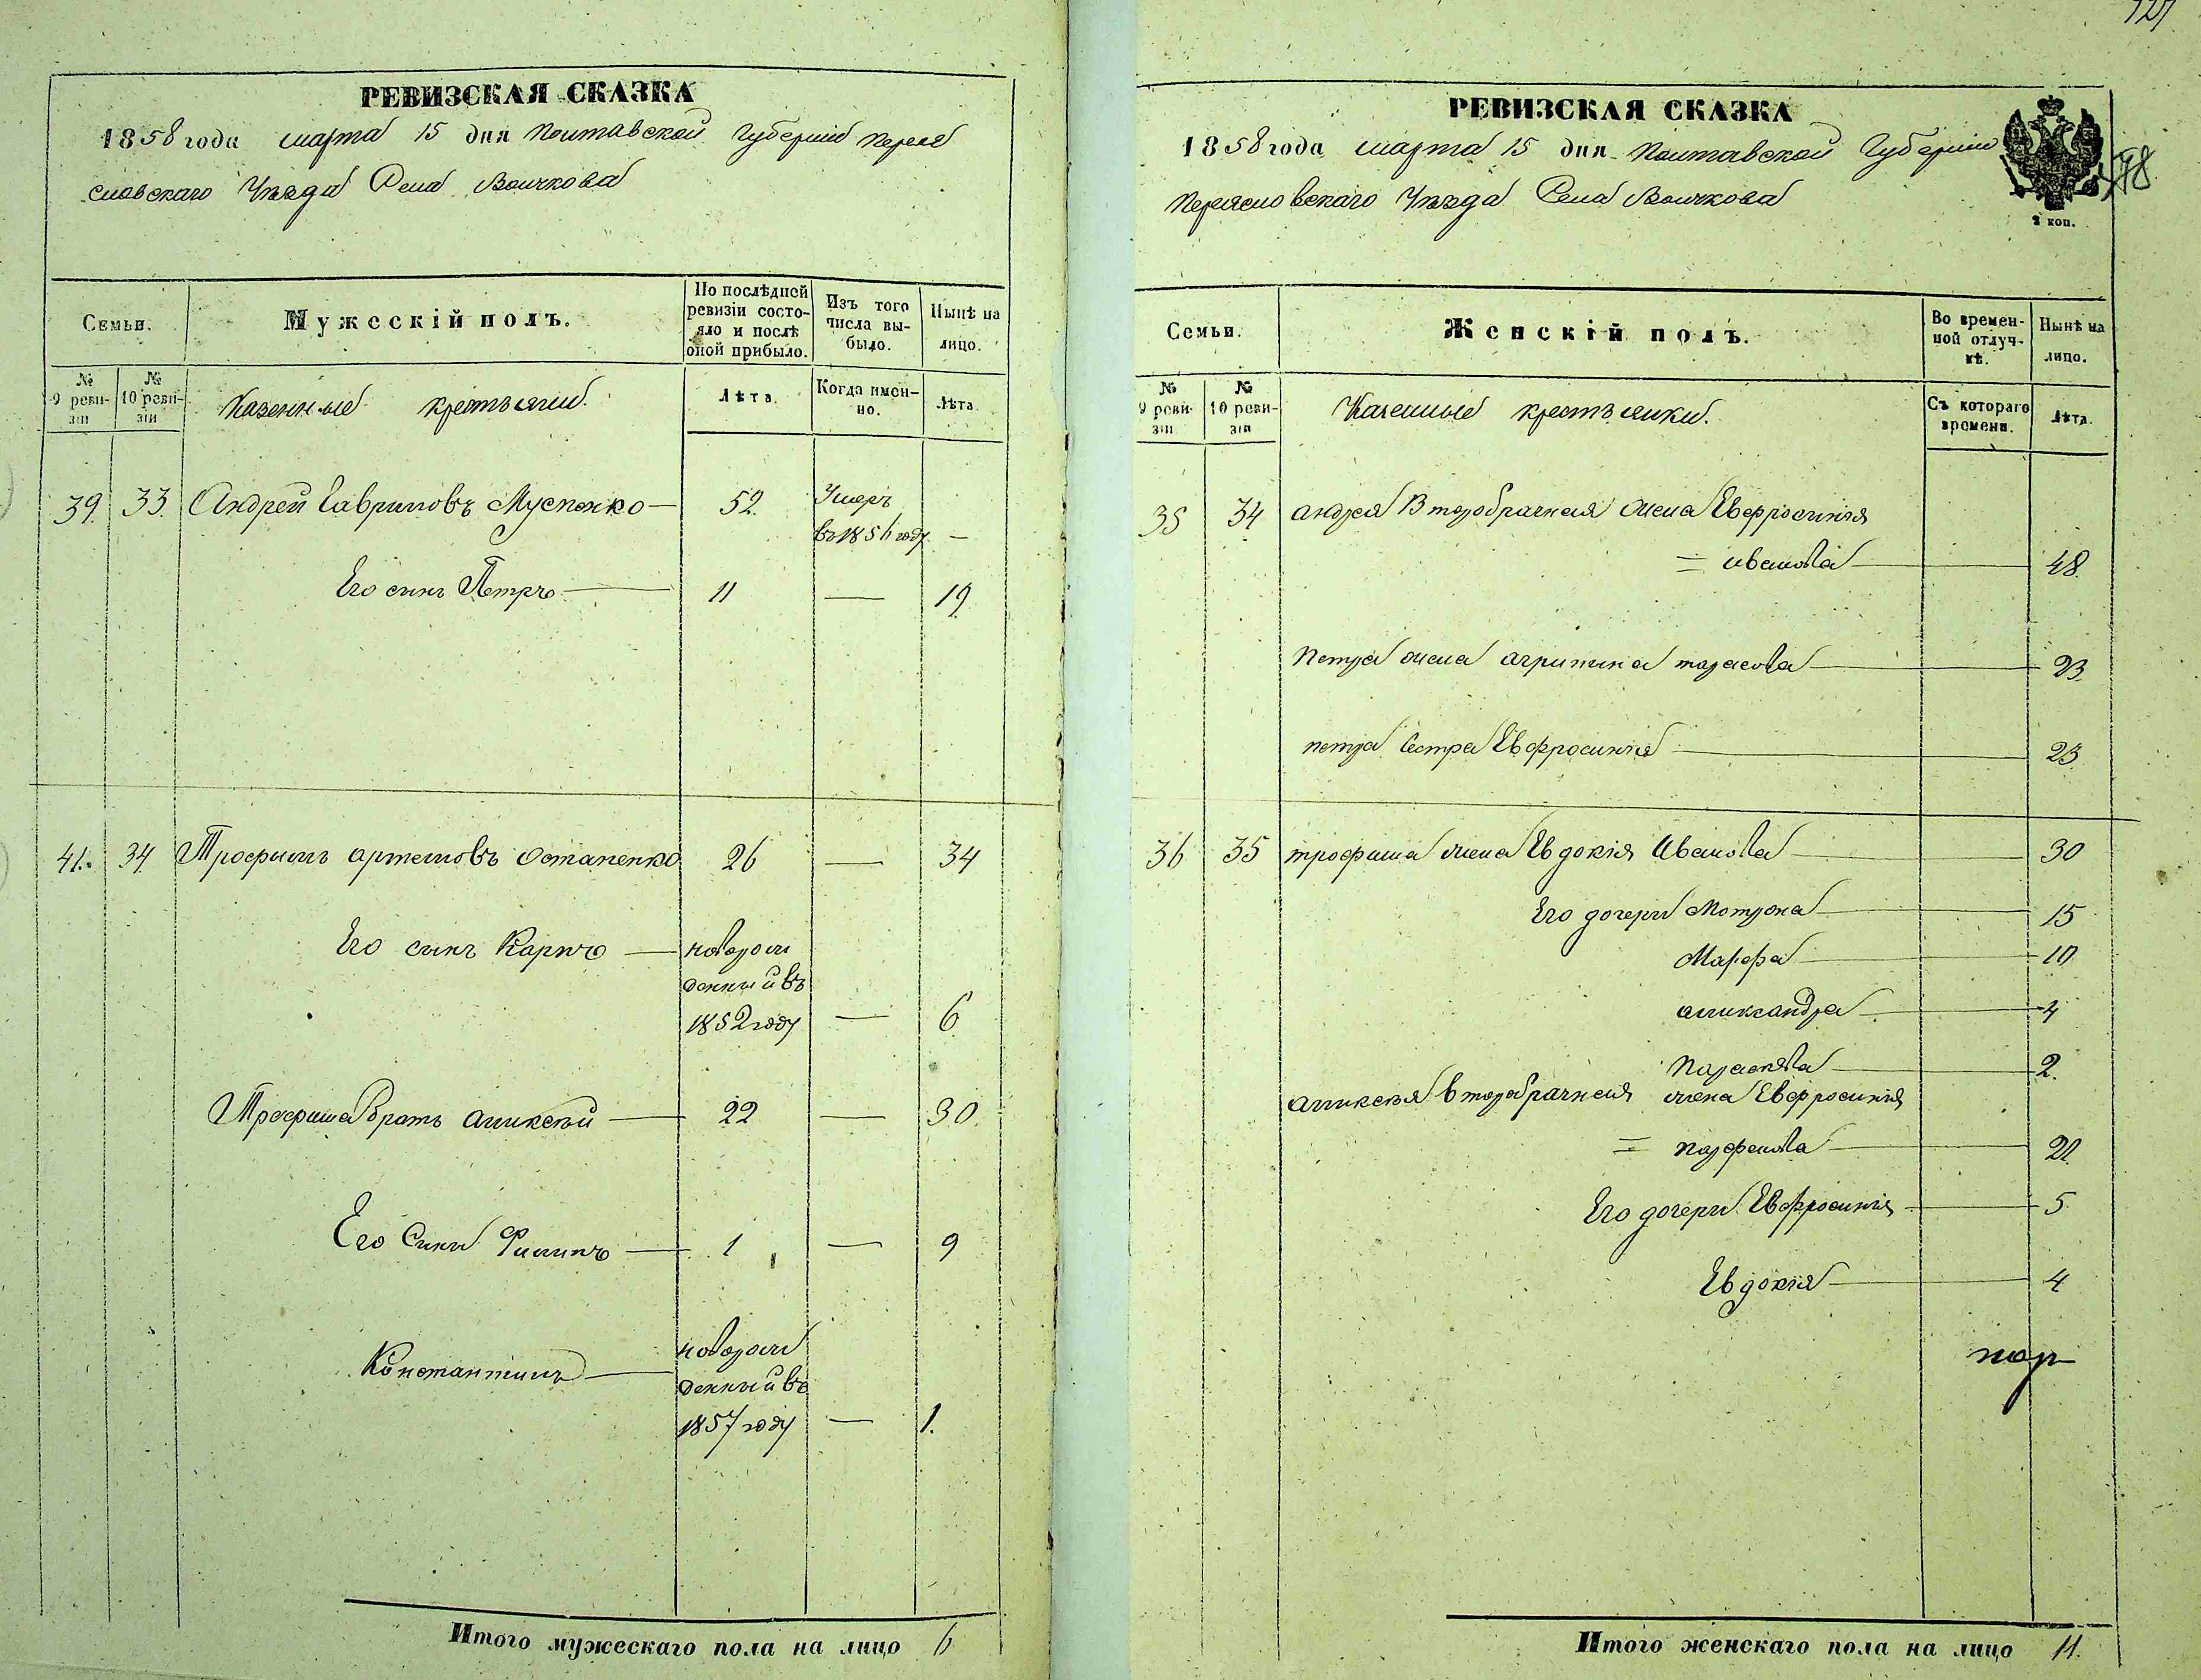 РЕВИЗСКАЯ СКАЗКА
1858 года марта 15 дня Полтавской Губерніи Перея
словскаго Уѣзда Села Волчкова
Семьи.
Мужескій полъ.
По послѣдней ревизіи состояло и послѣ оной прибыло.
Изъ того числа выбыло.
Нынѣ на лицо.
№ 9 ревизіи
№ 10 ревизіи
Казенные крестьяни.
Лѣта.
Когда именно.
Лѣта.
39. 33. Андрей Гавриловъ Мусѣнко — 52. Умеръ
въ 1856 году —
Его синъ Петръ — 11 — 19.
41. 34. Трофимъ артемовъ Остапенко 26 — 34
Его синъ Карпъ — новорож
денный въ
1852 году — 6
Трофима братъ аликсѣй — 22 — 30.
Его Сини Филипъ — 1 — 9
Константинъ — новорож
денный въ
1857 году — 1.
Итого мужескаго пола на лицо 6
РЕВИЗСКАЯ СКАЗКА
1858 года марта 15 дня Полтавской Губерніи
Переясловскаго Уѣзда Села Волчкова
2 коп.
Семьи.
Женскій полъ.
Во временной отлучкѣ.
Нынѣ на лицо.
№ 9 ревизіи
№ 10 ревизіи
Казенные крестьянки.
Съ котораго времени.
Лѣта.
35 34 андрея Второбрачная жена Евфросинія
= иванова — 48.
Петра жена агрипина тарасова — 23.
петра Сестра Евфросинія — 23.
36 35 трофима жена Евдокія Иванова — 30
Его дочери Мотрона — 15
Марфа — 10
аликсандра — 4
Параскѣва — 2.
аликсѣя второбрачная жена Евфросинія
= парфенова — 21.
Его дочери Евфросинія — 5
Евдокія — 4
Итого женскаго пола на лицо 11.